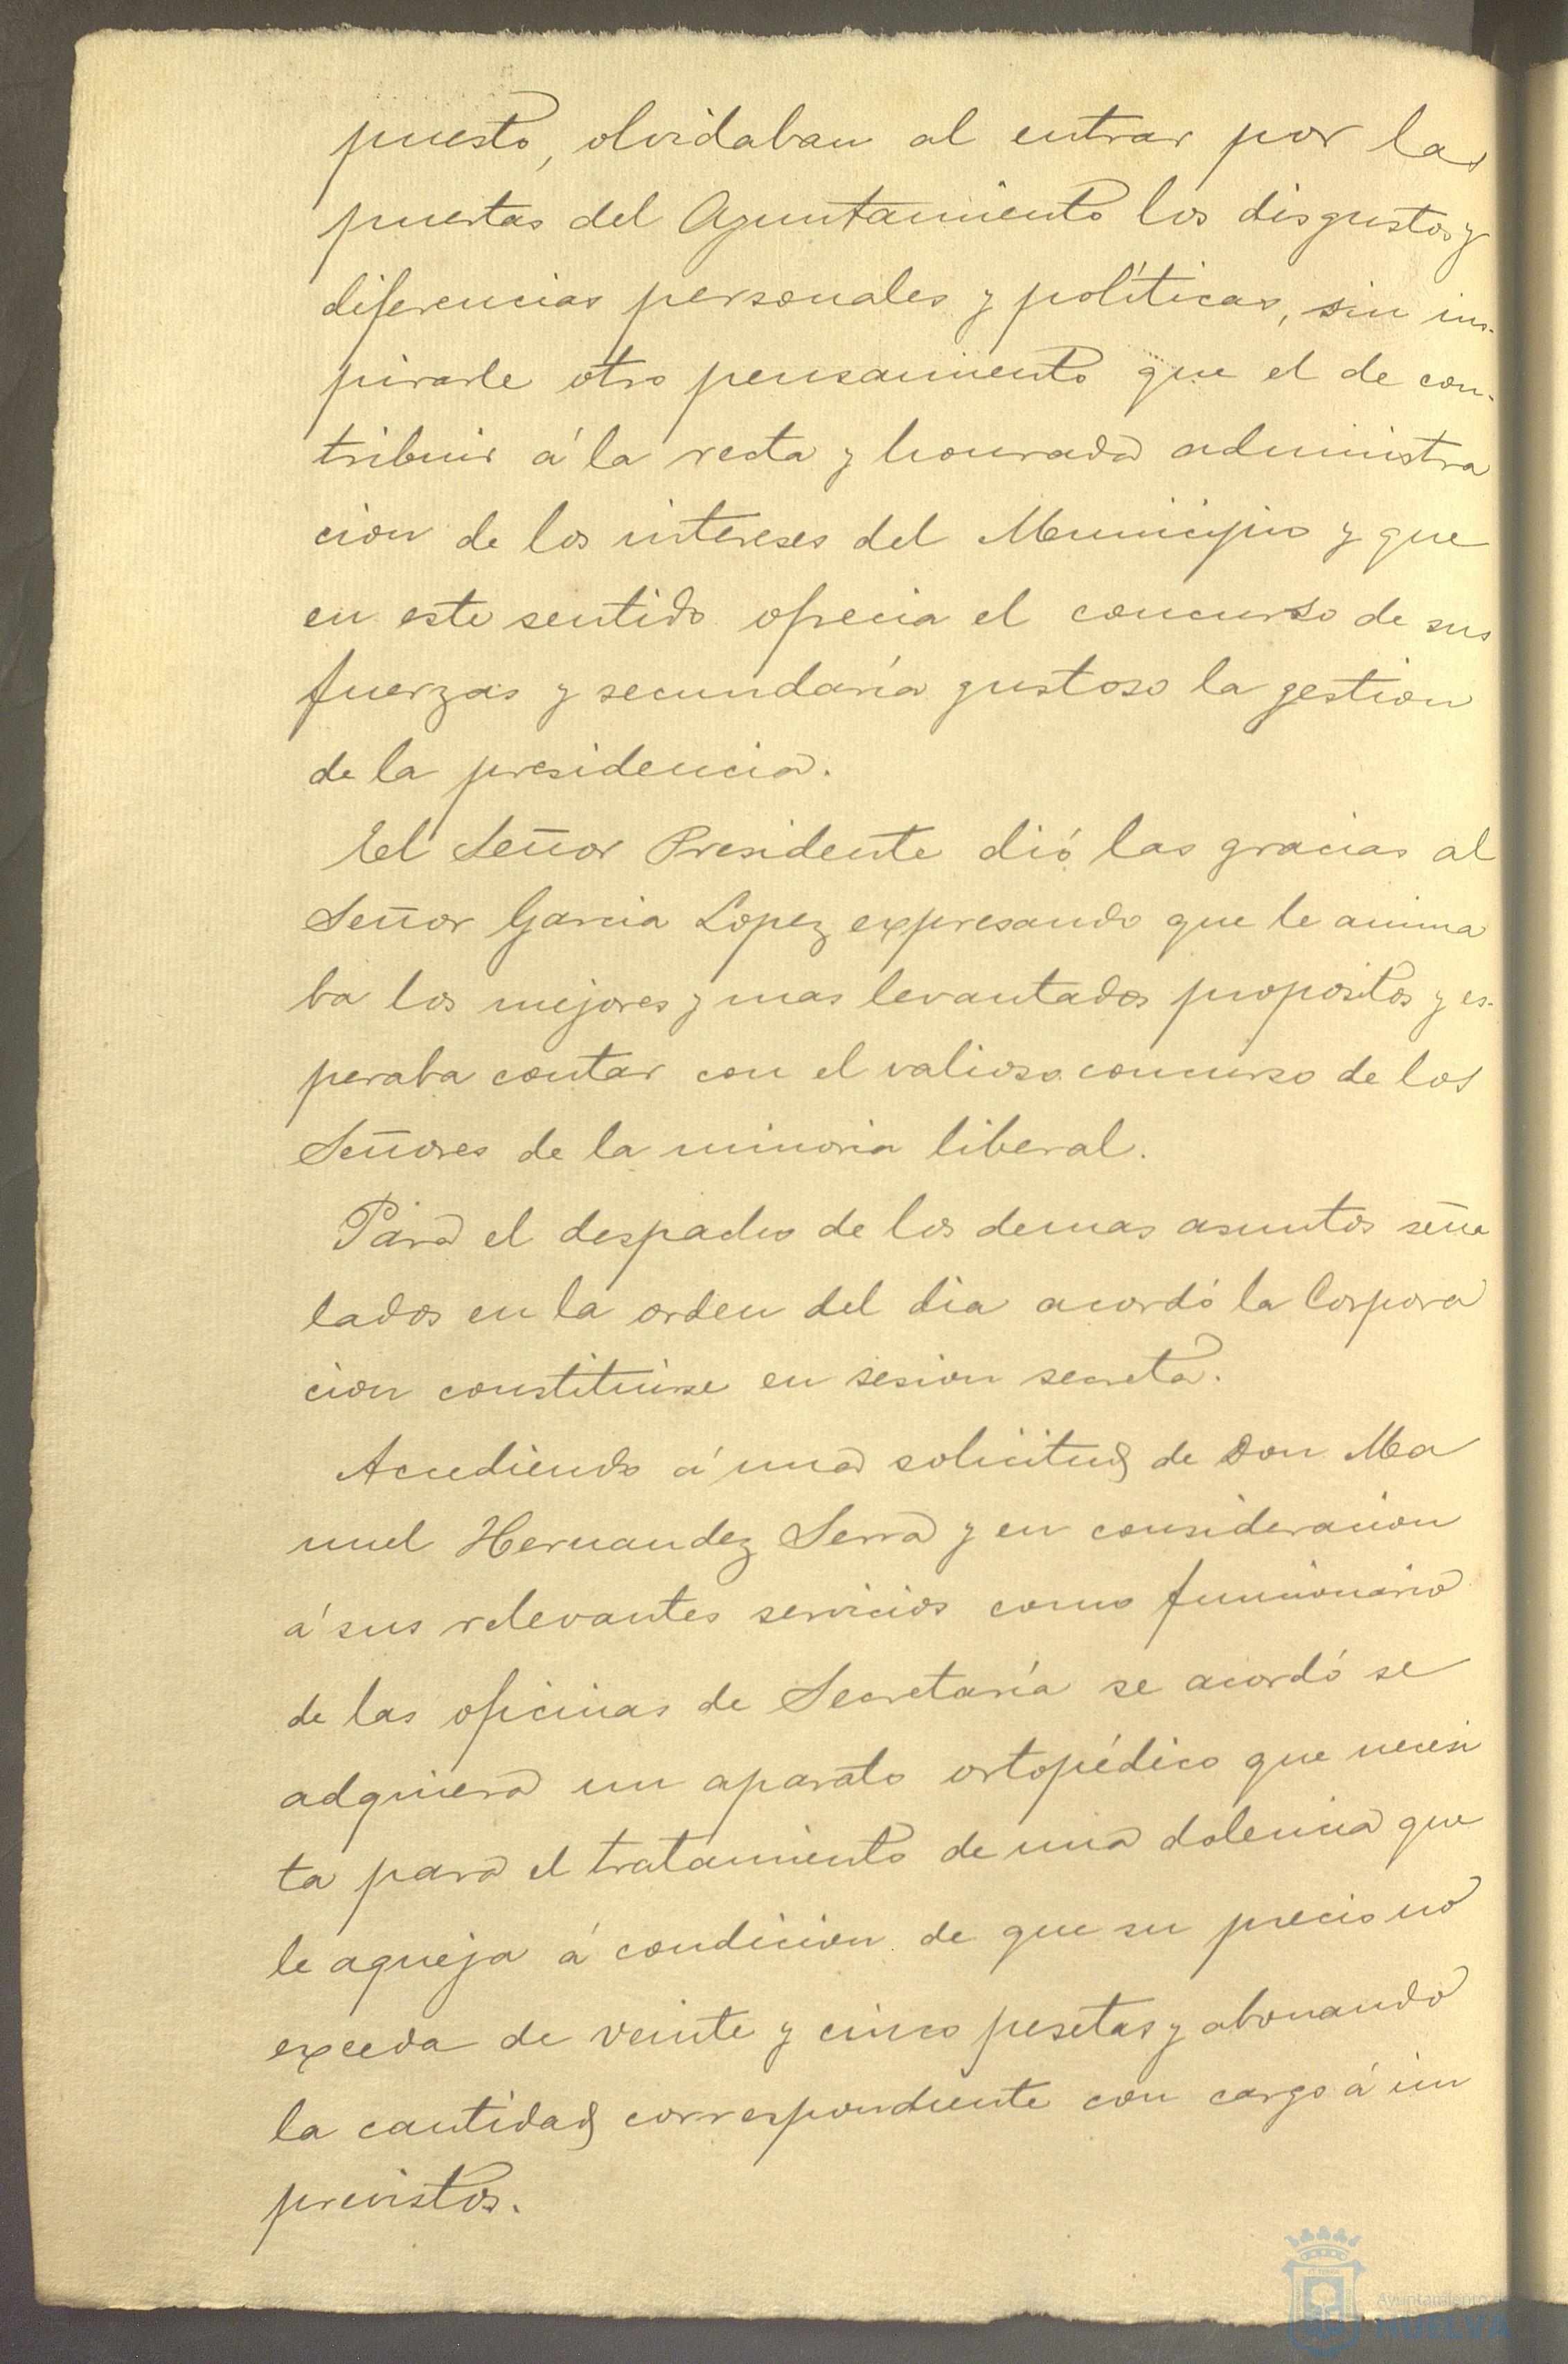 puesto, olvidaban al entrar por las
puertas del Ayuntamiento los disgustos y
diferencias personales y políticas, sin ins-
pirarle otro pensamiento que el de con-
tribuir á la recta y honrada administra
cion de los intereses del Municipio y que
en este sentido ofrecia el concurso de sus
fuerzas y secundaría gustoso la gestion
de la presidencia.
El Señor Presidente dió las gracias al
Señor Garcia Lopez expresando que le anima
ba los mejores y mas levantados propositos y es-
peraba contar con el valioso concurso de los
Señores de la minoria liberal.
Para el despacho de los demas asuntos seña
lados en la orden del dia acordó la Corpora
cion constituirse en sesion secreta.
Accediendo á una solicitud de Don Ma
nuel Hernandez Serra y en consideracion
á sus relevantes servicios como funcionario
de las oficinas de Secretaría se acordó se
adquiera un aparato ortopédico que necesi
ta para el tratamiento de una dolencia que
le aqueja á condicion de que su precio no
exceda de veinte y cinco pesetas y abonando
la cantidad correspondiente con cargo á im
previstos.
Ayuntamiento de
HUELVA